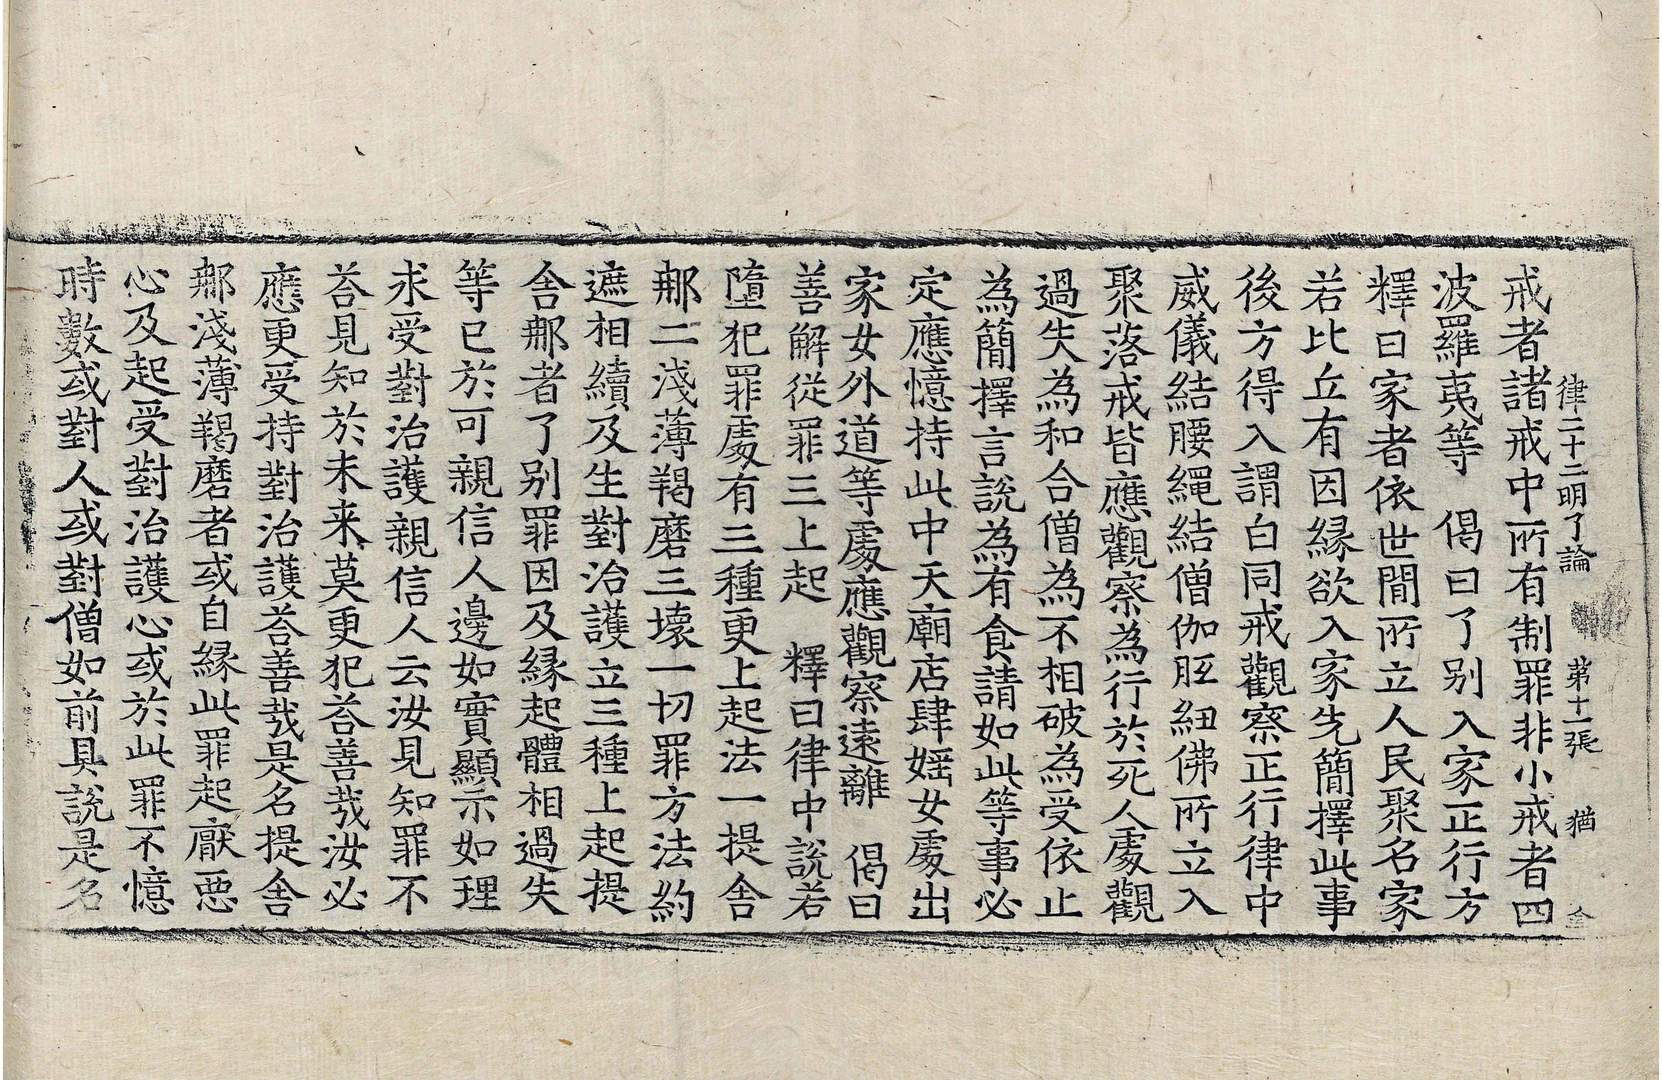 律二十二明了論 第十一張 猶
戒者諸戒中所有制罪非小戒者四
波羅夷等 偈曰了別入家正行方
釋曰家者依世間所立人民聚名家
若比丘有因縁欲入家先簡擇此事
後方得入謂白同戒觀察正行律中
威儀結腰繩結僧伽胵紐佛所立入
聚落戒皆應觀察為行於死人處觀
過失為和合僧為不相破為受依止
為簡擇言說為有食請如此等事必
定應憶持此中天廟店肆婬女處出
家女外道等處應觀察遠離 偈曰
善解從罪三上起 釋曰律中說若
墮犯罪處有三種更上起法一提舍
那二淺薄羯磨三壞一切罪方法約
遮相續及生對治護立三種上起提
舍那者了別罪因及縁起體相過失
等已於可親信人邊如實顯示如理
求受對治護親信人云汝見知罪不
荅見知於未来莫更犯荅善哉汝必
應更受持對治護荅善哉是名提舍
那淺薄羯磨者或自縁此罪起厭惡
心及起受對治護心或於此罪不憶
時數或對人或對僧如前具說是名